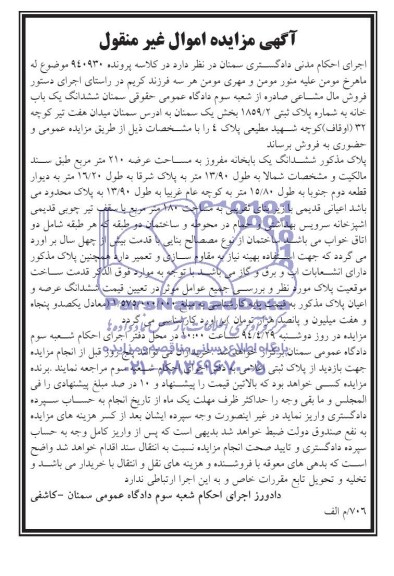 آگهی مزایده اموال غیر منقول
اجرای احکام مدنی دادگستری سمنان در نظر دارد در کلاسه پرونده ۹۴۰۹۳۰ موضوع له
ماهرخ مومن علیه منور مومن و مهری مومن هر سه فرزند کریم در راستای اجرای دستور
فروش مال مشاعی صادره از شعبه سوم دادگاه عمومی حقوقی سمنان ششدانگ یک باب
خانه به شماره پلاک ثبتی ۱۸۵۹/۲ بخش یک سمنان به ادرس سمنان میدان هفت تیر کوچه
۳۲ (اوقاف)کوچه شهید مطیعی پلاک ۴ را با مشخصات ذیل از طریق مزایده عمومی و
حضوری به فروش برساند
پلاک مذکور ششدانگ یک بابخانه مفروز به مساحت عرصه ۲۱۰ متر مربع طبق سند
مالکیت و مشخصات شمالا به طول ۱۳/۹۰ متر به پلاک شرقا به طول ۱۶/۲۰ متر به دیوار
قطعه دوم جنوبا به طول ۱۵/۸۰ متر به کوچه عام غربیا به طول ۱۳/۹۰ به پلاک محدود می
باشد اعیانی قدیمی با زیربنای تقریبی به مساحت ۱۸۰ متر مربع با سقف تیر چوبی قدیمی
اشپزخانه سرویس بهداشتی و حمام در محوطه و ساختمان دو طبقه که هر طبقه شامل دو
اتاق خواب می باشد ساختمان از نوع مصصالح بنایی با قدمت بیش از چهل سال بر اورد
می گردد که جهت استفاده بهینه نیاز به مقاوم سازی و تعمیر دارد همچنین پلاک مذکور
دارای انشعابات اب و برق و گاز می باشد با توجه به موارد فوق الذکر قدمت ساخت
موقعیت پلاک مورد نظر و بررسی جمیع عوامل موثر در تعیین قیمت ششدانگ عرصه و
اعیان پلاک مذکور به قیمت پایه کارشناسی به مبلغ ۱/۵۷۵/۰۰۰/۰۰۰ معادل یکصدو پنجاه
و هفت میلیون و پانصد هزار تومان براورد کارشناسی می گردد
مزایده در روز دوشنبه ۹۴/۴/۲۹ ساعت ۱۰:۰۰ در محل دفتر اجرای احکام شعبه سوم
دادگاه عمومی سمنان برگزار خواهد شد خریداران می توانند پنج روز قبل از انجام مزایده
جهت بازدید از پلاک ثبتی اعلامی به دفتر اجرای احکام شعبه سوم مراجعه نمایند .برنده
مزایده کسی خواهد بود که بالاتین قیمت را پیشنهاد و ۱۰ در صد مبلغ پیشنهادی را فی
المجلس و ما بقی وجه را حداکثر ظرف مهلت یک ماه از تاریخ انجام به حساب سپرده
دادگستری واریز نماید در غیر اینصورت وجه سپرده ایشان بعد از کسر هزینه های مزایده
به نفع صندوق دولت ضبط خواهد شد بدیهی است که پس از واریز کامل وجه به حساب
سپرده دادگستری و تایید صحت انجام مزایده نسبت به انتقال سند اقدام خواهد شد واضح
است که بدهی های معوقه با فروشنده و هزینه های نقل و انتقال با خریدار می باشد و
تخلیه و تحویل تابع مقررات خاص و به این اجرا ارتباطی ندارد
دادورز اجرای احکام شعبه سوم دادگاه عمومی سمنان -کاشفی
۷۰۶/م الف